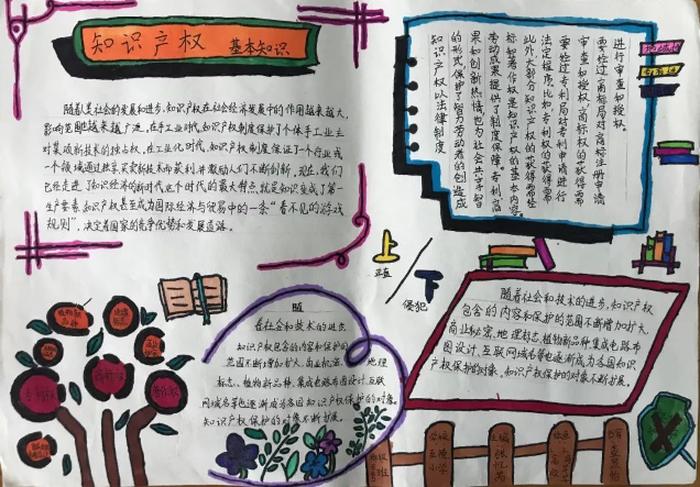 知识产权 基本知识
随着人类社会的发展和进步,知识产权在社会经济发展中的作用越来越大,
影响范围也越来越广泛。在手工业时代,知识产权制度保护了个体手工业主
对某项新技术的独占权,在工业化时代,知识产权制度保证了一个行业或
一个领域通过独享买卖新技术而获利,并激励人们不断创新。现在,我们
已经走进了知识经济的新时代,这个时代的最大特点,就是知识变成了第一
生产要素,知识产权甚至成为国际经济与贸易中的一条“看不见的游戏
规则”,决定着国家的竞争优势和发展道路。
知识产权以法律制度
的形式,保护了智力劳动者的创造成
果和创新热情,也为社会共享智
劳动成果提供了制度保障,专利
标和著作权是知识产权的基本内容。
此外大部分知识产权的获得需要
法定程序,比如,专利权的获得需
要经过专利局对专利申请进行
审查和授权,商标权的获得需
要经过商标局对商标注册申请
进行审查和授权。
上
正直
下
侵犯
随
着社会和技术的进步
知识产权包含的内容和保护的
范围不断增加扩大,商业秘密,地理
标志、植物新品种、集成电路布图设计、互联
网域名等也逐渐成为各国知识产权保护的对象。
知识产权保护的对象不断扩展。
随着社会和技术的进步,知识产权
包含的内容和保护的范围不断增加扩大,
商业秘密,地理标志,植物新品种,集成电路布
图设计、互联网域名等也逐渐成为各国知识
产权保护的对象。知识产权保护的对象不断扩展。
植物新
品种
专利权
商标权
著作权
学校
小学
主编